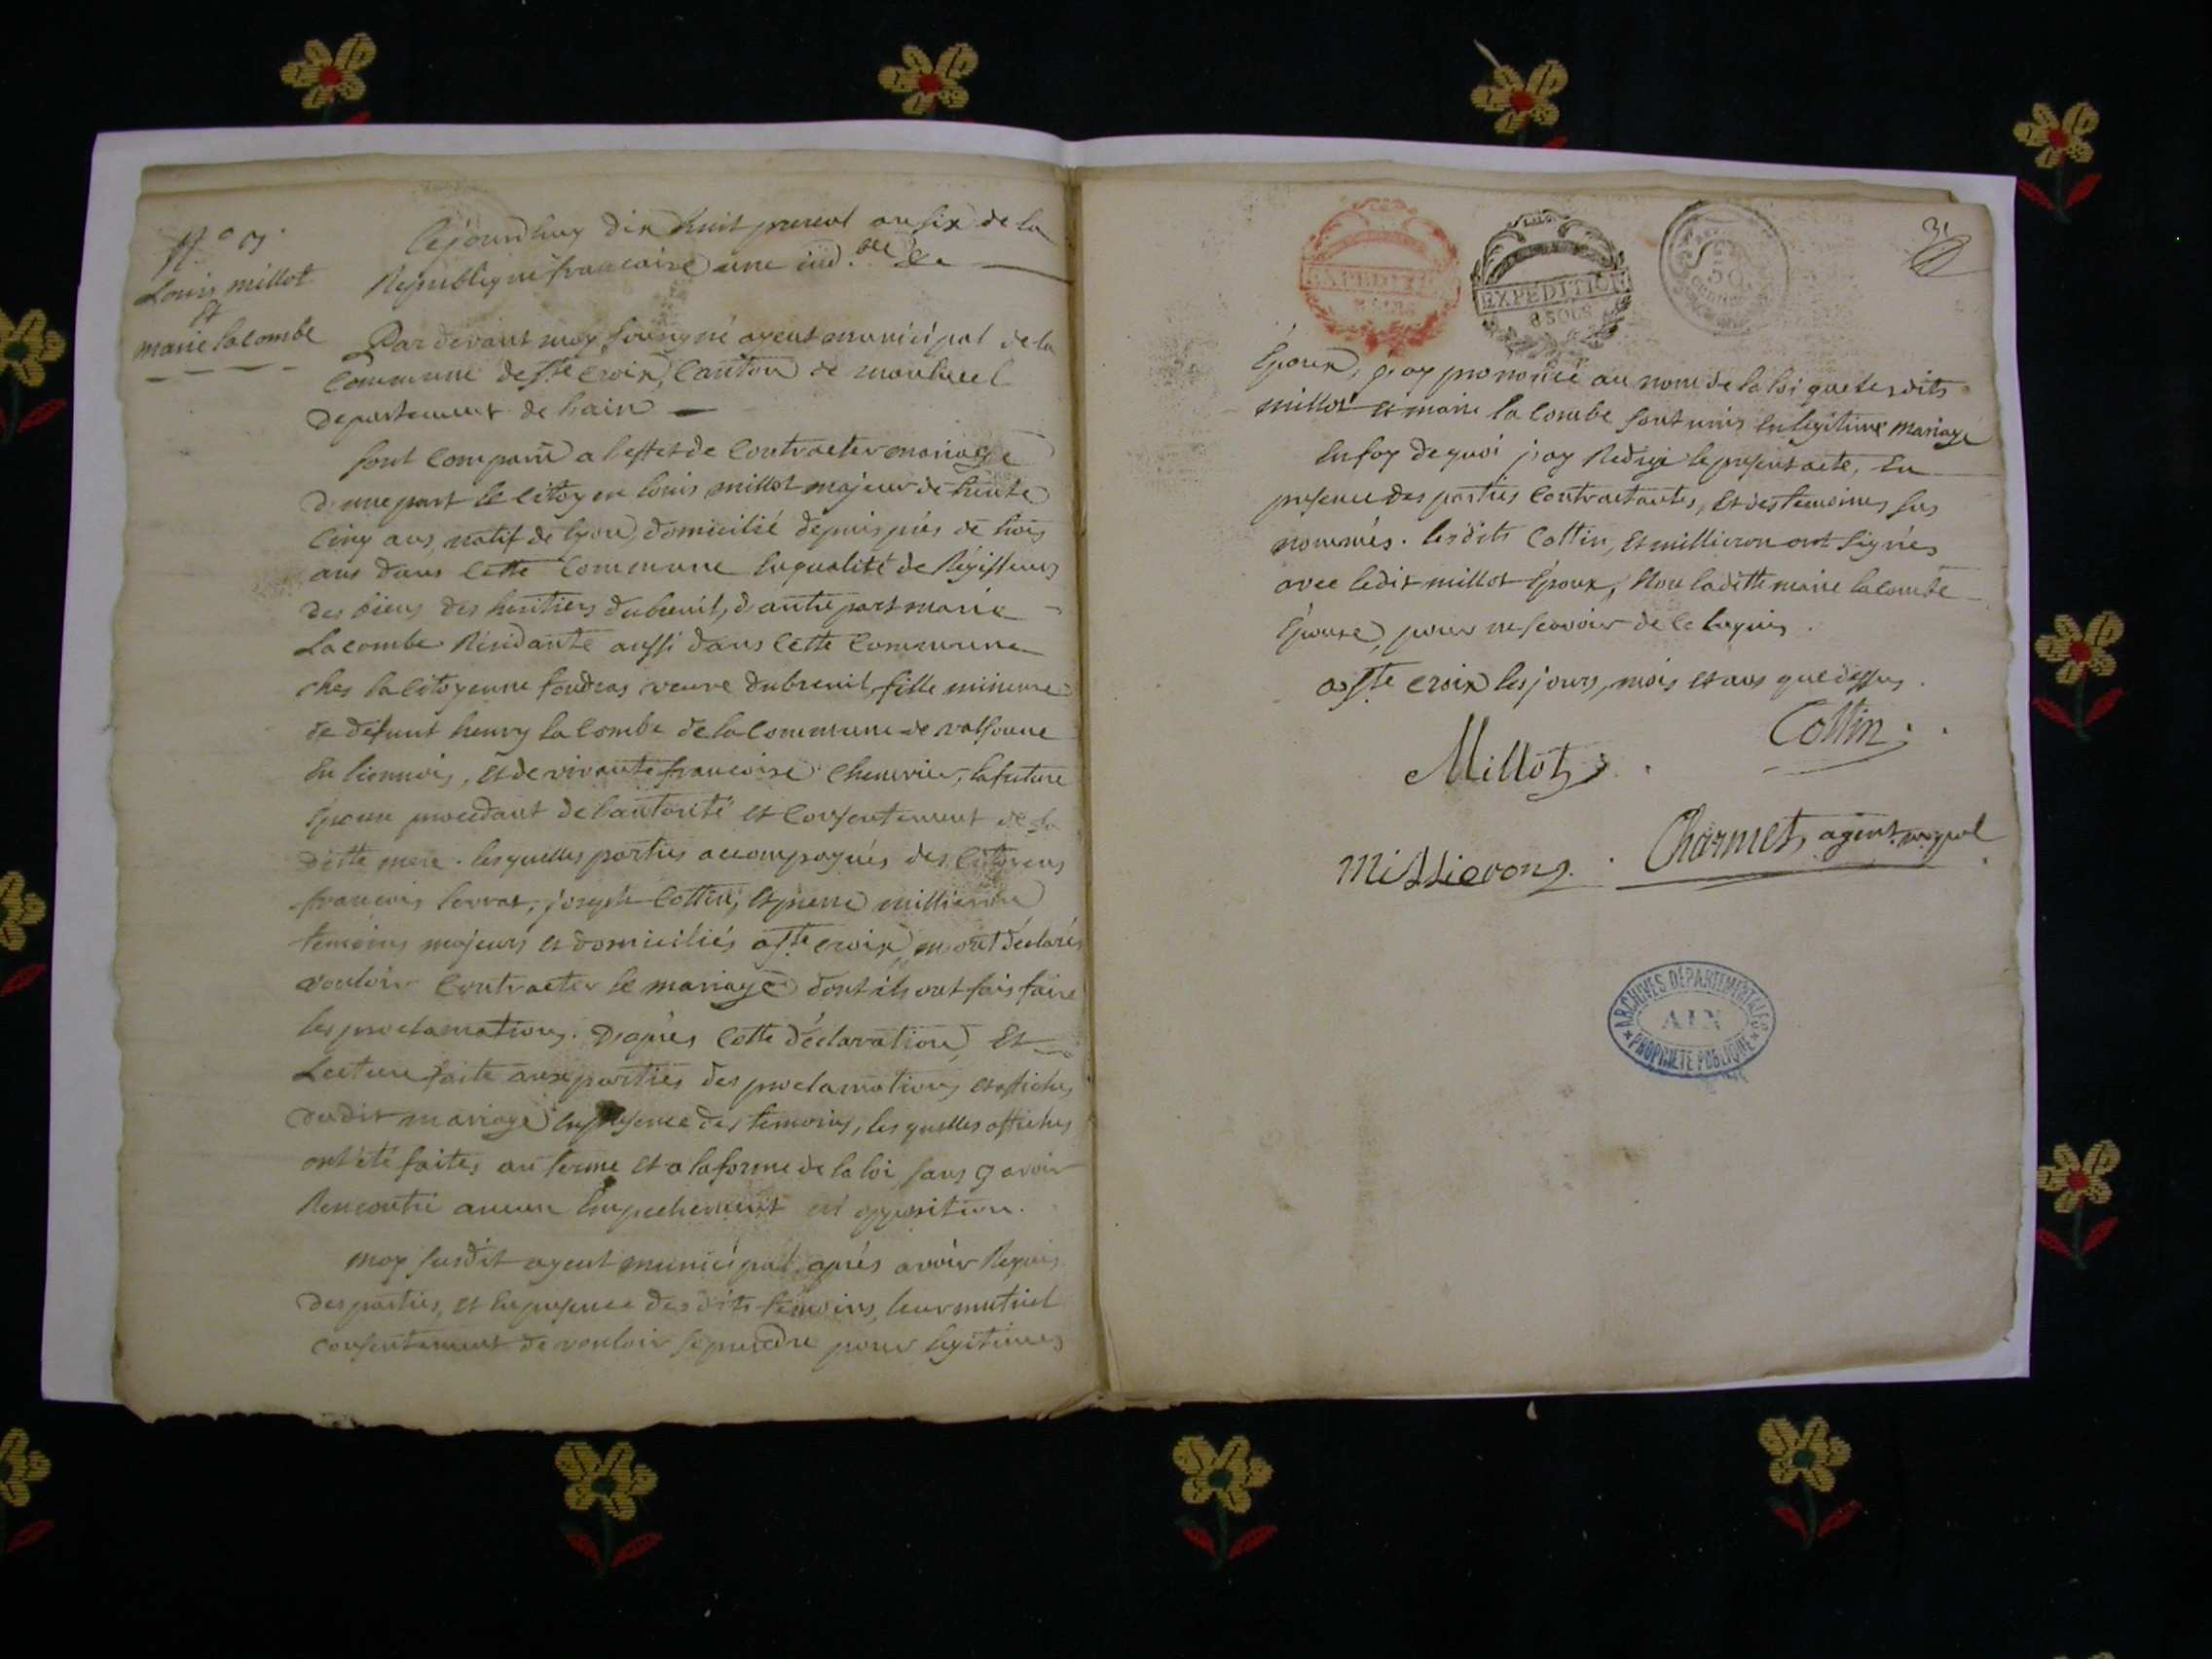 N.o 3.
Louis millot
&
marie lacombe
Cejourdhuy dix huit prereal an six de la
Republique francaise une ind.ble &a
Par devant moy soussigné agent municipal de la
Commune de Ste croix, Canton de montluel
departement de lain
sont comparu a leffet de Contracter mariage
d'une part le Citoyen louis millot majeur de trente
Cinq ans, natif de lyon, domicilié depuis près de trois
ans dans Cette Commune En qualité de Régisseur
des biens des heritiers dubreuil, d'autre part marie
Lacombe Résidante aussi dans Cette Commune
chez la Citoyenne foudras veuve dubreuil, fille mineure
de defunt henry la Combe de la Commune de valsonne
En lionnois, et de vivante francoise Chenevier, la future
Epouse procedant de l'autorité et Consentement de sa
ditte mere. lesquelles parties accompagnés des Citoyens
francois, joseph Cottin, et pierre millieron
temoins majeurs et domiciliés a Ste croix m'ont déclarés
vouloir Contracter le mariage dont ils ont fais faire
les proclamations. D'après Cette déclaration, Et
Lecture faite aux parties des proclamations et affiches
dudit mariage En presence des temoins, les quelles affiches
ont été faites au terme et a la forme de la loi, sans y avoir
Rencontré aucun Empechement ni opposition.
moy susdit agent municipal, après avoir Requis
des parties, et En presence des dits temoins, leur mutuel
Consentement de vouloir se prendre pour legitimes
31
EXPEDITION
EXPEDITION
8 SOUS
50
CENTIMES
Epoux, j'ay prononcé au nom de la loi que lesdits
millot et marie la Combe sont unis En legitime mariage
En foy de quoi j'ay Redigé le present acte, En
presence des parties Contractantes, Et des temoins sus
nommés. lesdits Cottin, Et millieron ont signés
avec ledit millot Epoux, Non laditte marie lacombe
Epouse, pour ne scavoir de ce Enquis.
a Ste croix les jours, mois et ans que dessus.
Millot
Cottin
Millieron
Charmet, agent mpal
ARCHIVES DÉPARTEMENTALES
AIN
PROPRIÉTÉ PUBLIQUE